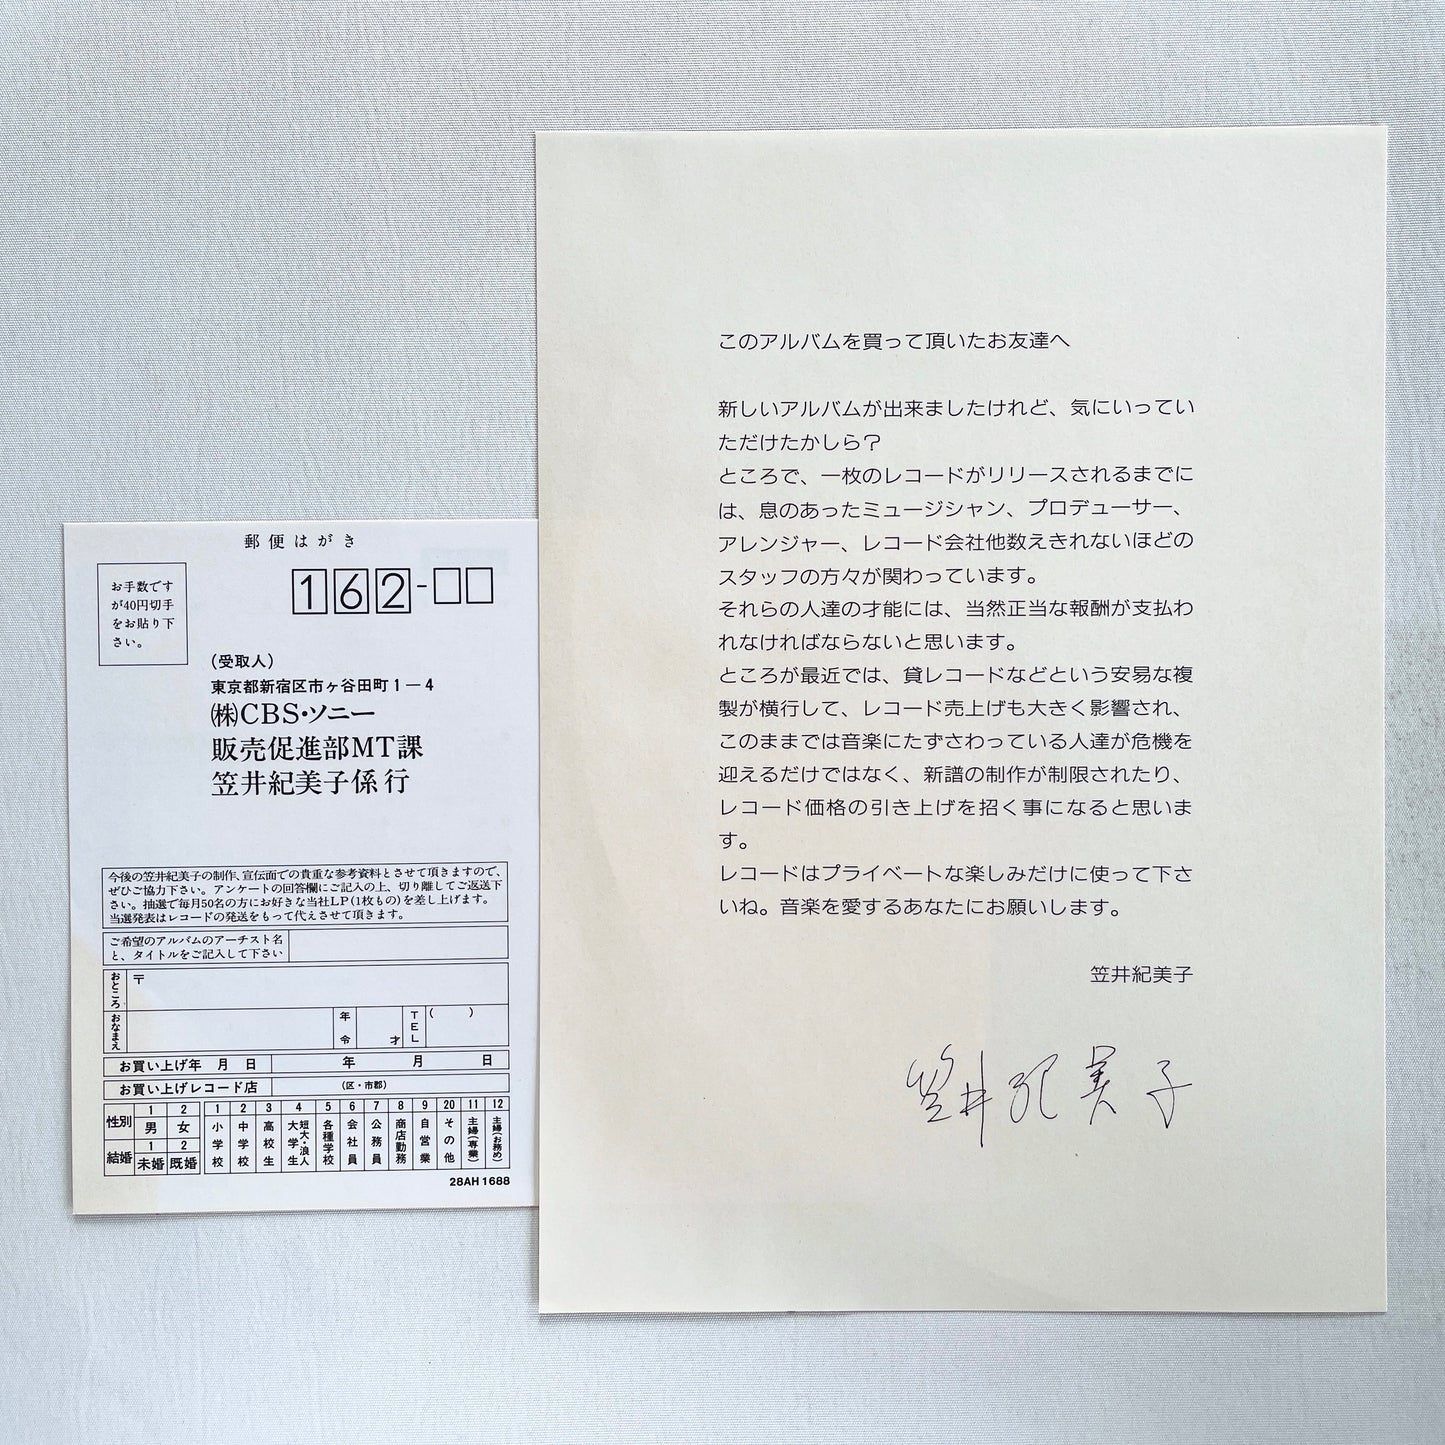 郵便はがき
お手数です
が40円切手
をお貼り下
さい。
162-
(受取人)
東京都新宿区市ヶ谷田町1－4
㈱CBS・ソニー
販売促進部MT課
笠井紀美子係 行
今後の笠井紀美子の制作、宣伝面での貴重な参考資料とさせて頂きますので、
ぜひご協力下さい。アンケートの回答欄にご記入の上、切り離してご返送下
さい。抽選で毎月50名の方にお好きな当社LP(1枚もの)を差し上げます。
当選発表はレコードの発送をもって代えさせて頂きます。
ご希望のアルバムのアーチスト名
と、タイトルをご記入して下さい
おところ 〒
おなまえ 年令 才 TEL ( )
お買い上げ年 月 日 年 月 日
お買い上げレコード店 (区・市郡)
性別 1 男 2 女
結婚 1 未婚 2 既婚
1 小学校
2 中学校
3 高校生
4 短大・浪人 大学生
5 各種学校
6 会社員
7 公務員
8 商店勤務
9 自営業
20 その他
11 主婦(専業)
12 主婦(お務め)
28AH 1688
このアルバムを買って頂いたお友達へ
新しいアルバムが出来ましたけれど、気にいってい
ただけたかしら？
ところで、一枚のレコードがリリースされるまでに
は、息のあったミュージシャン、プロデューサー、
アレンジャー、レコード会社他数えきれないほどの
スタッフの方々が関わっています。
それらの人達の才能には、当然正当な報酬が支払わ
れなければならないと思います。
ところが最近では、貸レコードなどという安易な複
製が横行して、レコード売上げも大きく影響され、
このままでは音楽にたずさわっている人達が危機を
迎えるだけではなく、新譜の制作が制限されたり、
レコード価格の引き上げを招く事になると思いま
す。
レコードはプライベートな楽しみだけに使って下さ
いね。音楽を愛するあなたにお願いします。
笠井紀美子
笠井紀美子